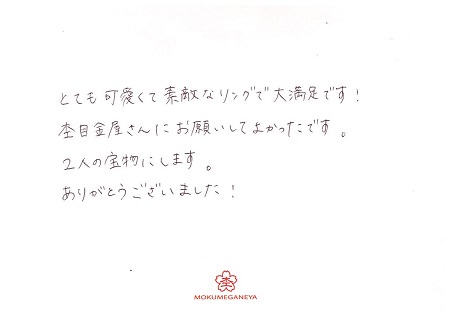 とても可愛くて素敵なリングで大満足です!
杢目金屋さんにお願いしてよかったです。
2人の宝物にします。
ありがとうございました!
杢
MOKUMEGANEYA